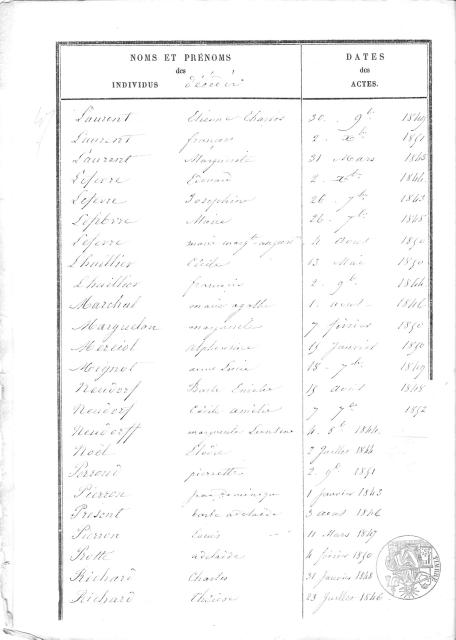 NOMS ET PRÉNOMS
des
INDIVIDUS décédés
DATES
des
ACTES.
Laurent Etienne Charles 30. 9bre 1849
Laurent françois 2. Xbre 1851
Laurent Marguerite 31 Mars 1843
Lefevre Edouard 2. Xbre 1844
Lefevre Josephine 26. 7bre 1843
Lefebvre Marie 26. 7bre 1845
Lefevre marie margte 4 aout 1850
Lhuillier 13 Mai 1850
Lhuillier françois 2. 9bre 1844
Marchal marie agathe 1. aout 1846
marguerite 7 février 1850
alphonsine 15 Janvier 1850
Mignot anne 18. 7bre 1849
Neudorf Barbe 15 aout 1848
Neudorf Cécile amélie 7 7bre 1852
Neudorff marguerite 1844
Noël Elodie 2 Juillet 1844
pierrette 2. 9bre 1851
Pierron 1 Janvier 1843
Present barbe adelaïde 3 aout 1846
Pierron Louis 11 Mars 1847
adelaïde 4 février 1850
Richard Charles 31 Janvier 1848
Richard Thérèse 23 Juillet 1846